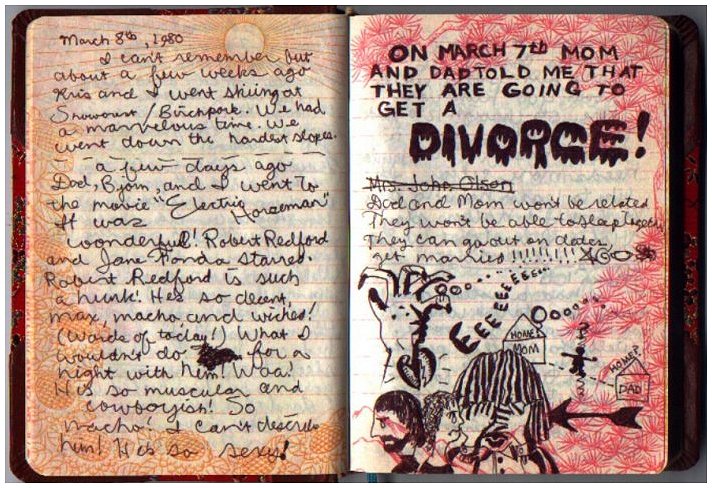 March 8th, 1980
I can't remember but
about a few weeks ago
Kris and I went skiing at
Snowcrest/Birchpark. We had
a marvelous time. We
went down the hardest slopes.
a few days ago
Dad, Bjorn, and I went to
the movie "Electric Horseman"
It was
wonderful! Robert Redford
and Jane Fonda starred.
Robert Redford is such
a hunk! Hes so decent,
max, macho, and wicked!
(Words of today!) What I
wouldn't do for a
night with him! Waa!
He is so muscular and
cowboyish! So
macho! I can't describe
him! He is so sexy!
ON MARCH 7th MOM
AND DAD TOLD ME THAT
THEY ARE GOING TO
GET A
DIVORCE!
Mrs. John Olson
Dad and Mom won't be related
They won't be able to sleep together
They can go out on dates,
get married!!!!!!!!
EEEEEEEEE...
HOME?
MOM
HOME?
DAD